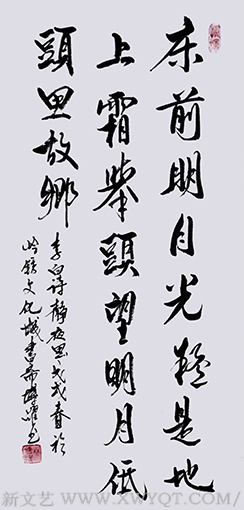 床前明月光疑是地
上霜舉頭望明月低
頭思故鄉
李白诗靜夜思戊戌春於
文化城書齋
新文艺 WWW.XWYQT.COM/